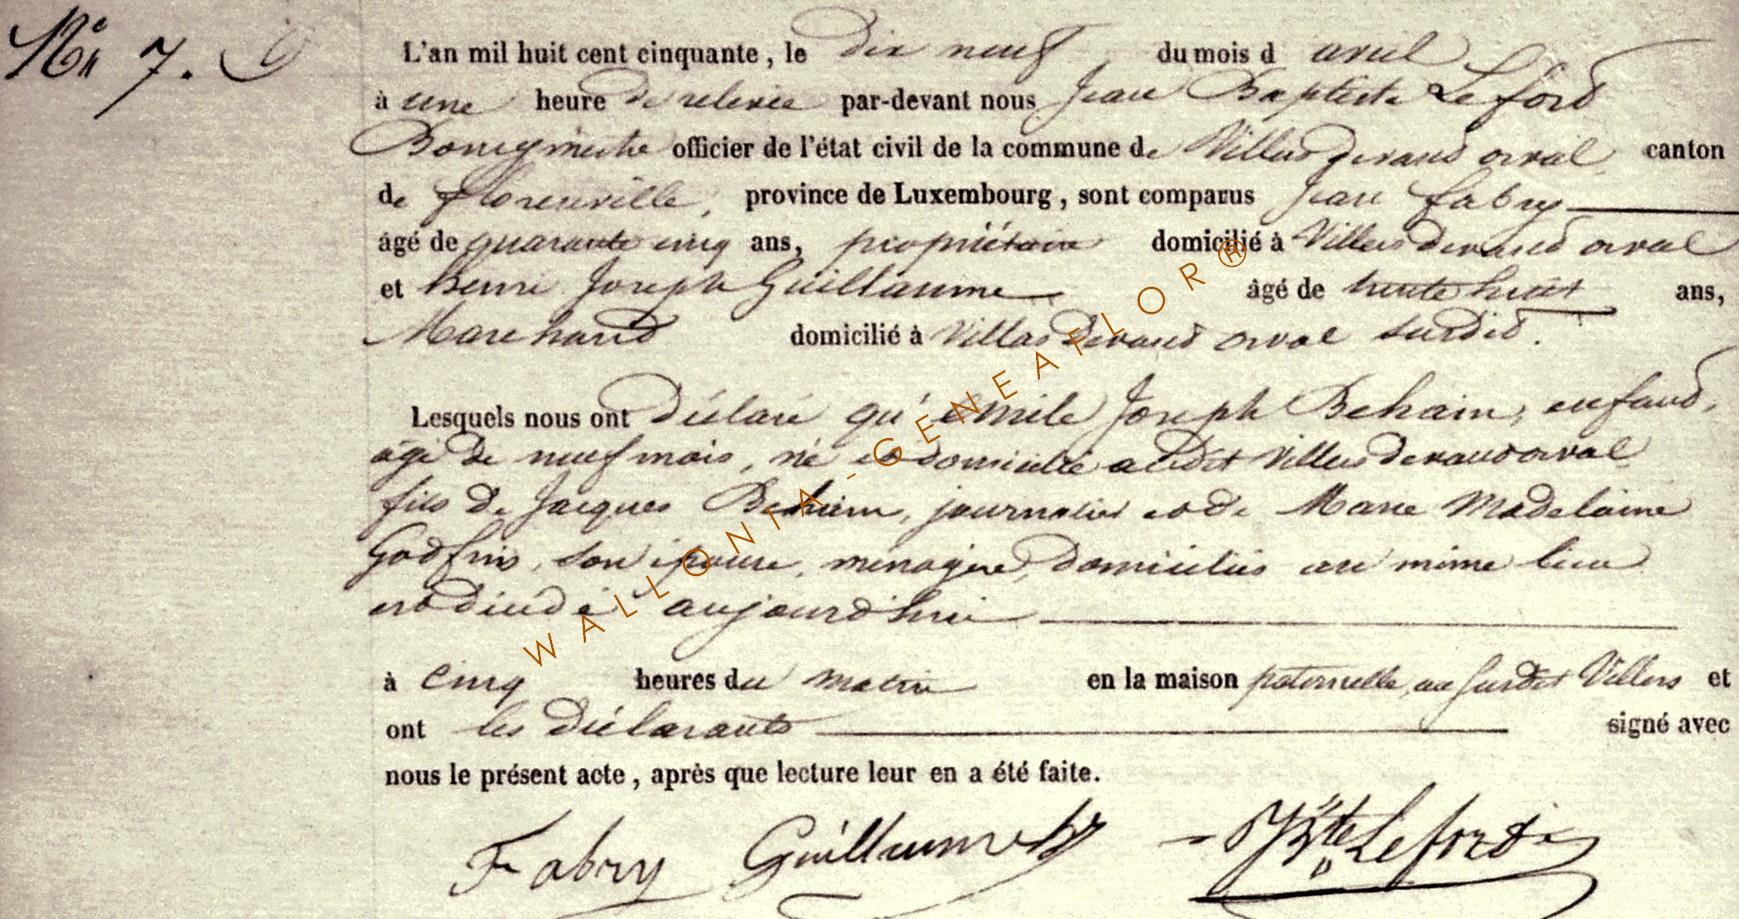 N° 7.
L'an mil huit cent cinquante, le dix neuf du mois d avril
à une heure de relevée par-devant nous Jean Baptiste Lefort
Bourgmestre officier de l'état civil de la commune de Villers devant orval canton
de florenville, province de Luxembourg, sont comparus Jean fabry
âgé de quarante cinq ans, propriétaire domicilié à Villers devant orval
et henri Joseph Guillaume âgé de trente huit ans,
Marchand domicilié à Villers devant orval susdit.
Lesquels nous ont déclaré qu'émile Joseph Behain, enfant,
âgé de neuf mois, né et domicilié audit Villers devant orval
fils de Jacques Behain, journalier et de Marie Madelaine
Godfrin, son épouse, ménagère, domiciliés au même lieu
est décédé aujourd'hui
à cinq heures du matin en la maison paternelle, au susdit Villers et
ont les déclarants signé avec
nous le présent acte, après que lecture leur en a été faite.
Fabry Guillaume JBte Lefort
WALLONIA-GENEAFLOR®